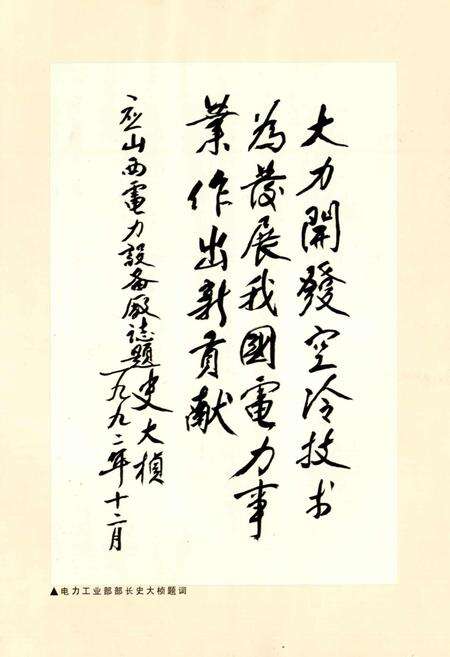 大力開發空冷技术
為發展我國電力事
業作出新貢献
应山西電力設备廠誌題
史大楨
一九九二年十二月
▲电力工业部部长史大桢题词